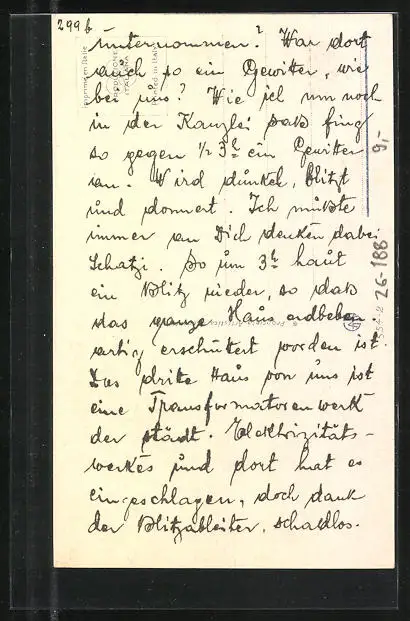 299b
unternommen? War dort
auch so ein Gewitter, wie
bei uns? Wie ich nun noch
in der Kanzlei saß fing
so gegen ½ 3h ein Gewitter
an. Wird dunkel, blitzt
und donnert. Ich mußte
immer an Dich denken dabei
Schatzi. So um 3h haut
ein Blitz nieder, so daß
das ganze Haus erdbeben
artig erschüttert worden ist.
Das dritte Haus von uns ist
eine Transformatorenwerk
der städt. Elektrizitäts-
werkes und dort hat es
eingeschlagen, doch dank
der Blitzableiter, schadlos.
9,-
26-188